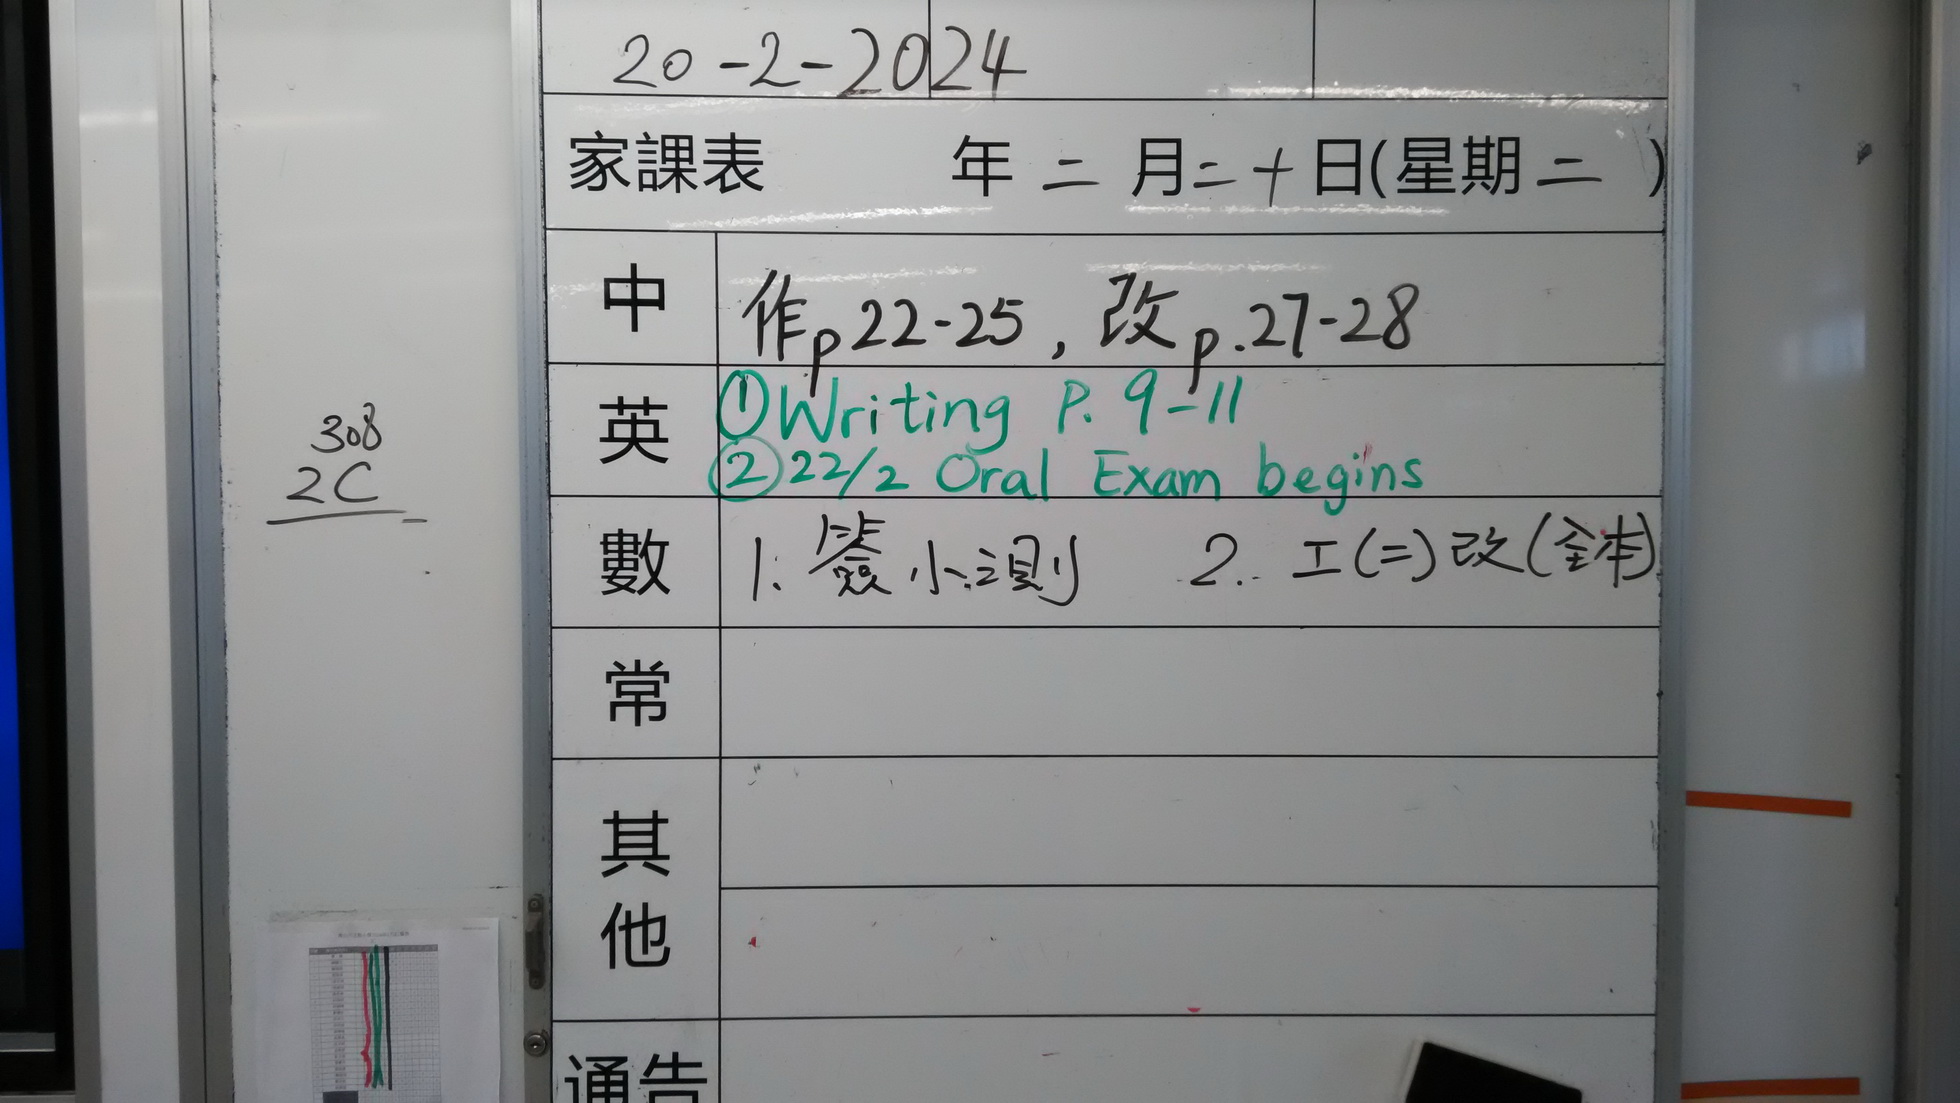 20-2-2024
家課表 年 二 月 二十 日(星期 二 )
中 作p22-25, 改p.27-28
英 ①Writing P. 9-11
②22/2 Oral Exam begins
數 1. 簽小測 2. 工(二)改(全本)
常
其他
通告
308
2C